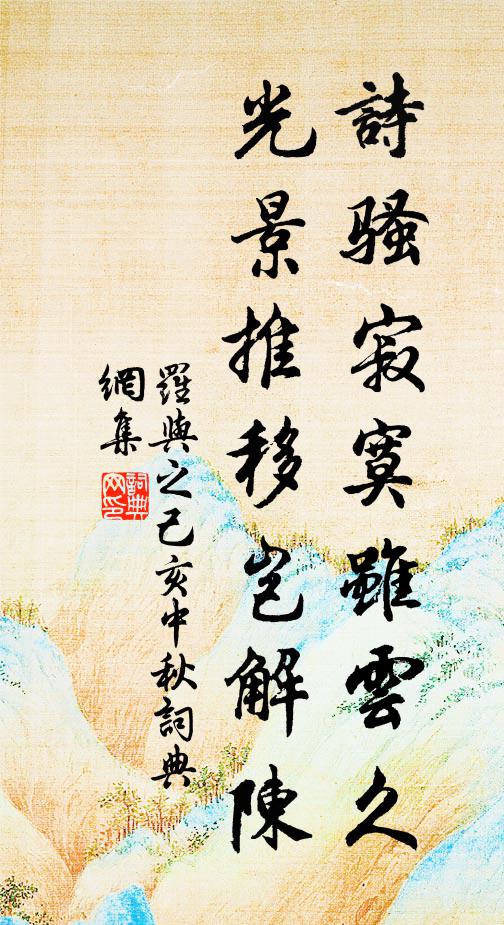 詩騷寂寞雖雲久
光景推移岂解陳
羅與之己亥中秋詞典
網集
詞典
网印